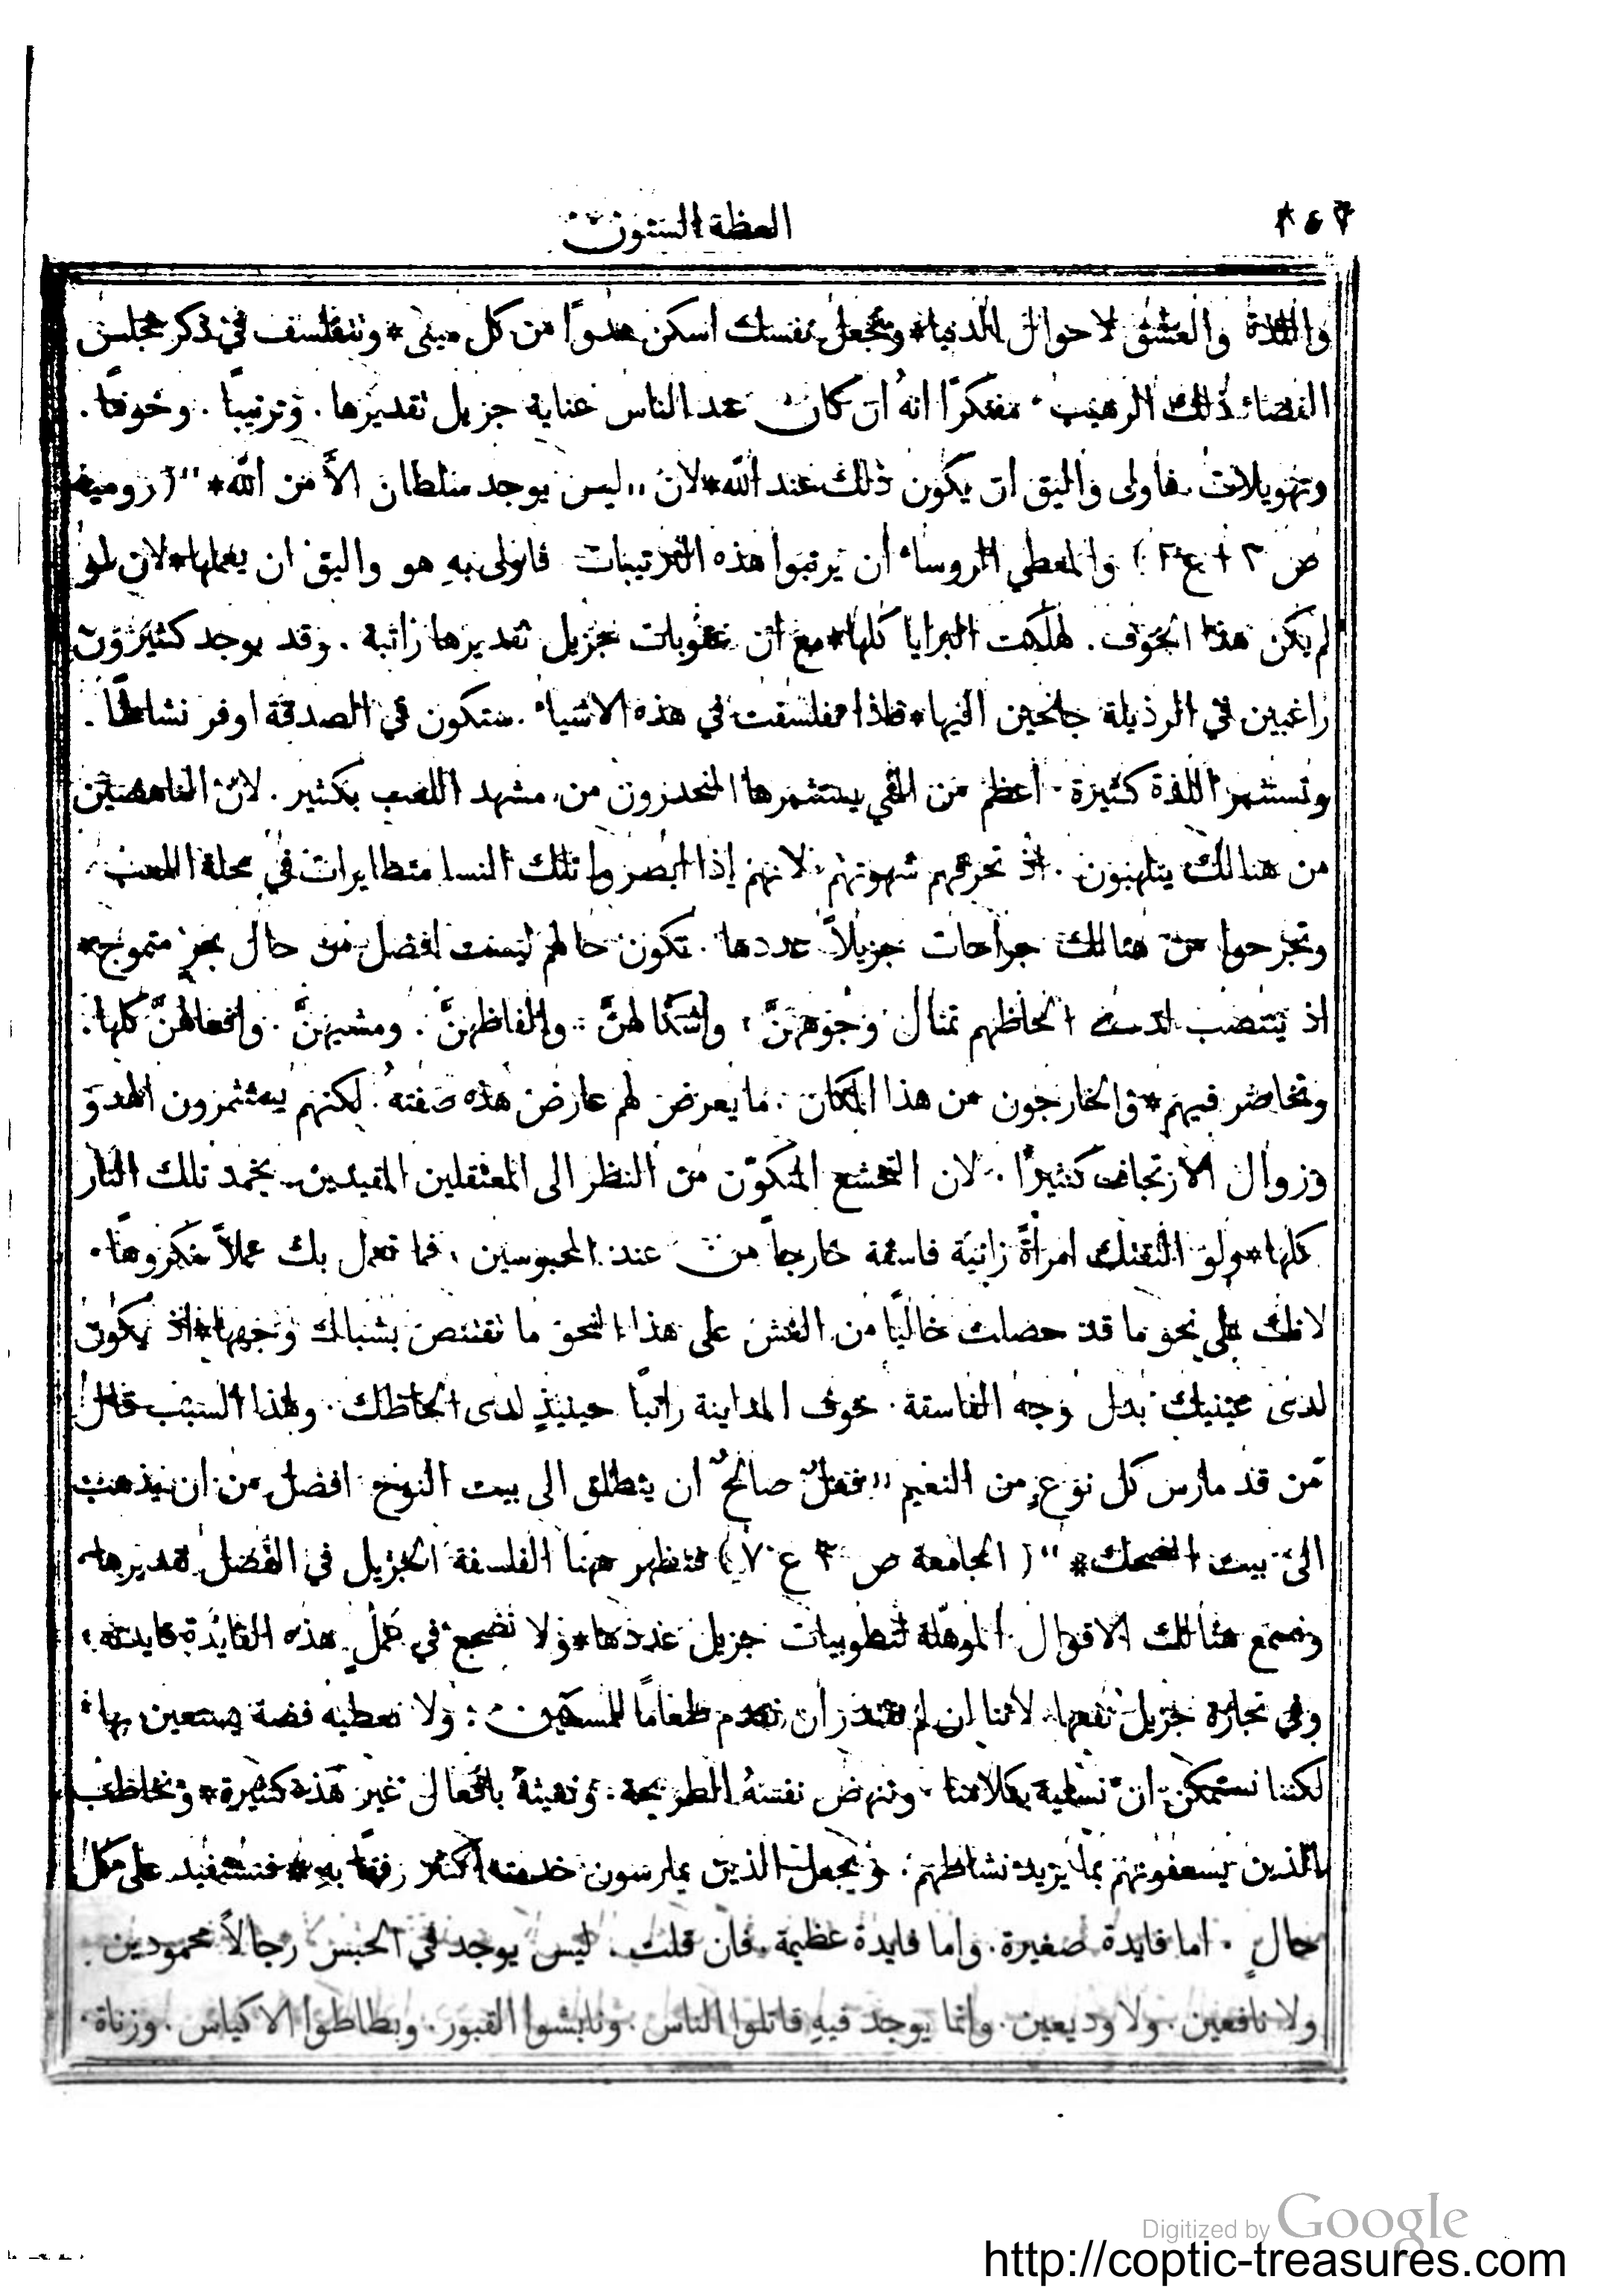 العظة الستون
واللذة والعشق لاحوال الدنيا* وتجعل نفسك اسكن هدوًا من كل مينى* وتتفلسف في ذكر مجلس
القضاء ذلك الرهيب. مفتكرًا انهُ ان كان عند الناس عناية جزيل تقديرها. وترتيبًا. وخوفًا.
وتهويلات. فاولى واليق ان يكون ذلك عند الله* لان ,,ليس يوجد سلطان الاَّ من الله*" (رومية
ص ١٣ ع ) والمعطي الروساء ان يرتبوا هذه الترتيبات فاولى بهِ هو واليق ان يعملها* لان لو
لم يكن هذا الخوف. لهلكت البرايا كلها* مع ان عقوبات جزيل تقديرها راتبة. وقد يوجد كثيرون
راغبين في الرذيلة جانحين اليها* فاذا تفلسفت في هذه الاشياء. ستكون في الصدقة اوفر نشاطًا.
وتستثمر اللذة كثيرة. اعظم من التي يستثمرها المنحدرون من مشهد اللعب بكثير. لان الناهضين
من هنالك يتلهبون. اذ تحرقهم شهوتهم. لانهم إذا ابصروا تلك النسا متطايرات في محلة اللعب.
وتجرحوا من هنالك جراحات جزيلاً عددها. تكون حالهم ليست افضل من حال بحرٍ متموج*
اذ ينتصب لدى الحاظهم تمثال وجوههنَّ. واشكالهنَّ. والفاظهنَّ. ومشيهنَّ. وافعالهنَّ كلها.
وتخاصر فيهم* والخارجون من هذا المكان. ما يعرض لهم عارض هذه صفتهُ. لكنهم يستثمرون الهدوّ
وزوال الارتجاف كثيرًا. لان التخشع المتكوّن من النظر الى المعتقلين المقيدين. يخمد تلك النار
كلها* ولو التقتك امرأةً زانية فاسقة خارجاً من عند المحبوسين. فما تعمل بك عملاً مكروهًا.
لانك على نحو ما قد حصلت خاليًا من الغش على هذا النحو ما تقتنص بشبالك وجهها* اذ يكون
لدى عينيك بدل وجه الفاسقة. خوف المداينة راتبًا حينيذٍ لدى الحاظك. ولهذا السبب قال
مَن قد مارس كل نوعٍ من النعيم ,,فعلٌ صالحٌ ان ينطلق الى بيت النوح افضل من ان يذهب
الى بيت الضحك*" (الجامعة ص ع ٧) فتظهر ههنا الفلسفة الجزيل في الفضل تقديرها.
ونسمع هنالك الاقوال الموهلة لتطويبات جزيل عددها* ولا نضجع في عملٍ هذه الفايدة فايدته.
وفي تجارة جزيل نفعها. لاننا ان لم نقتدر ان نقدم طعامًا للمسكين. ولا نعطيه فضة يستعين بها.
لكننا نستمكن ان نسليهُ بكلامنا. وننهض نفسهُ الطريحة. ونعينهُ بافعال غير هذه كثيرة* ونخاطب
الذين يسعفونهم بما يزيد نشاطهم. ونجعل الذين يمارسون خدمته اكثر رفقًا بهِ* فنستفيد على كل
حالٍ. اما فايدة صغيرة. واما فايدة عظيمة. فان قلت. ليس يوجد في الحبس رجالاً محمودين.
ولا نافعين. ولا وديعين. وانما يوجد فيهِ قاتلوا الناس. ونابشوا القبور. وبطاطوا الاكياس. وزناة.
Digitized by Google
http://coptic-treasures.com